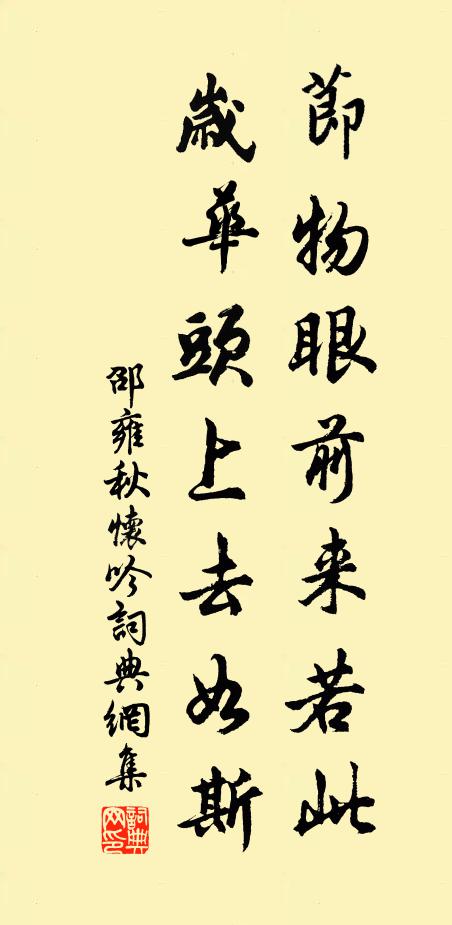 節物眼前来若此
歲華頭上去如斯
邵雍秋懷吟詞典網集
詞典
网印